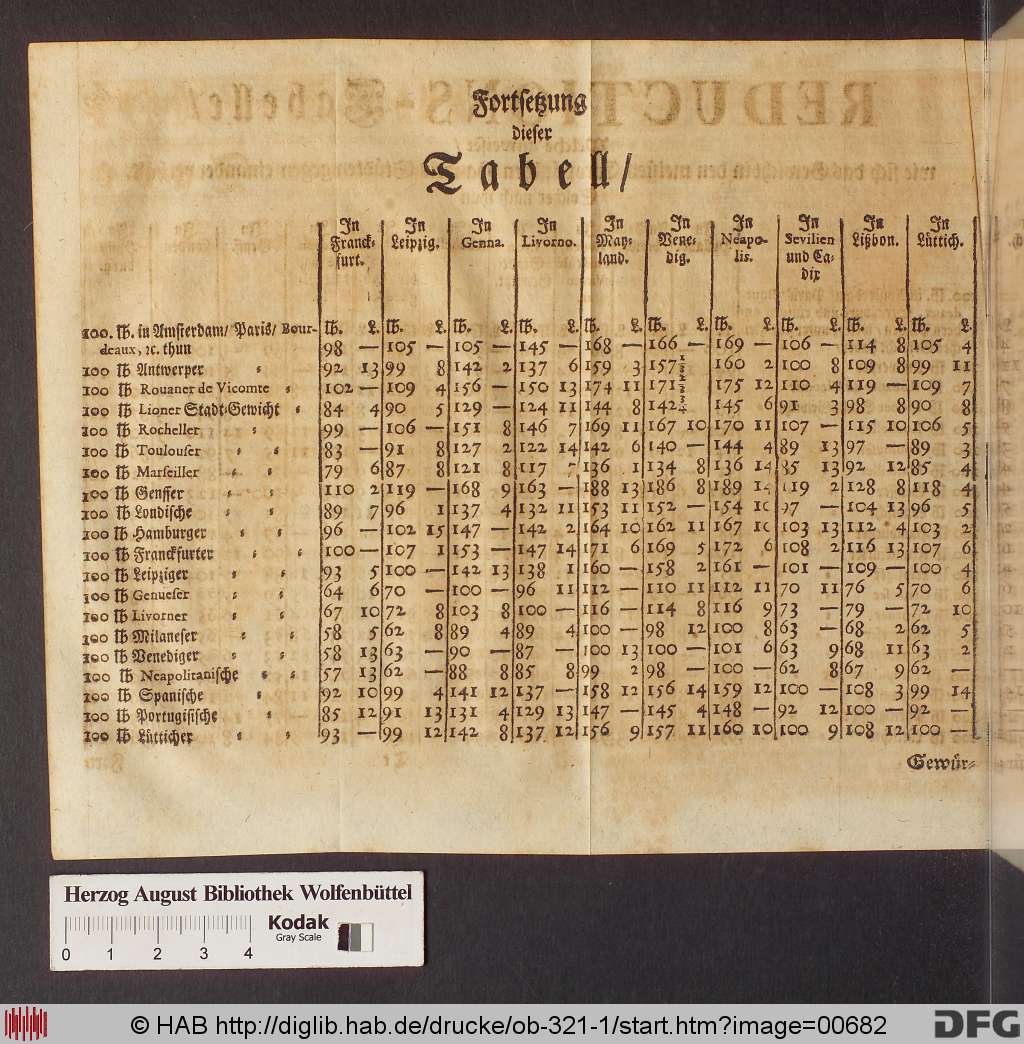 Fortsetzung
dieser
Tabell/
In Franck-furt. In Leipzig. In Genna. In Livorno. In May-land. In Vene-dig. In Neapo-lis. In Sevilien und Ca-dix In Lißbon. In Lüttich.
100. lb. in Amsterdam/ Paris/ Bour- lb. L. lb. L. lb. L. lb. L. lb. L. lb. L. lb. L. lb. L. lb. L. lb. L.
deaux, ꝛc. thun 98 — 105 — 105 — 145 — 168 — 166 — 169 — 106 — 114 8 105 4
100 lb Antwerper 92 13 99 8 142 2 137 6 159 3 157½ 160 2 100 8 109 8 99 11
100 lb Rouaner de Vicomte 102 — 109 4 156 — 150 13 174 11 171½ 175 12 110 4 119 — 109 7
100 lb Lioner Stadt-Gewicht 84 4 90 5 129 — 124 11 144 8 142¾ 145 6 91 3 98 8 90 8
100 lb Rocheller 99 — 106 — 151 8 146 7 169 11 167 10 170 11 107 — 115 10 106 5
100 lb Toulouser 83 — 91 8 127 2 122 14 142 6 140 — 144 4 89 13 97 — 89 3
100 lb Marseiller 79 6 87 8 121 8 117 7 136 1 134 8 136 14 85 13 92 12 85 4
100 lb Genffer 110 2 119 — 168 9 163 — 188 13 186 8 189 14 119 2 128 8 118 4
100 lb Londische 89 7 96 1 137 4 132 11 153 11 152 — 154 10 97 — 104 13 96 5
100 lb Hamburger 96 — 102 15 147 — 142 2 164 10 162 11 167 10 103 13 112 4 103 2
100 lb Franckfurter 100 — 107 1 153 — 147 14 171 6 169 5 172 6 108 2 116 13 107 6
100 lb Leipziger 93 5 100 — 142 13 138 1 160 — 158 2 161 — 101 — 109 — 100 4
100 lb Genueser 64 6 70 — 100 — 96 11 112 — 110 11 112 11 70 11 76 5 70 6
100 lb Livorner 67 10 72 8 103 8 100 — 116 — 114 8 116 9 73 — 79 — 72 10
100 lb Milaneser 58 5 62 8 89 4 89 4 100 — 98 12 100 8 63 — 68 2 62 5
100 lb Venediger 58 13 63 — 90 — 87 — 100 13 100 — 101 6 63 9 68 11 63 2
100 lb Neapolitanische 57 13 62 — 88 8 85 8 99 2 98 — 100 — 62 8 67 9 62 —
100 lb Spanische 92 10 99 4 141 12 137 — 158 12 156 14 159 12 100 — 108 3 99 14
100 lb Portugisische 85 12 91 13 131 4 129 13 147 — 145 4 148 — 92 12 100 — 92 —
100 lb Lütticher 93 — 99 12 142 8 137 12 156 9 157 11 160 10 100 9 108 12 100 —
Gewür-
Herzog August Bibliothek Wolfenbüttel
Kodak
Gray Scale
0 1 2 3 4
© HAB http://diglib.hab.de/drucke/ob-321-1/start.htm?image=00682
DFG